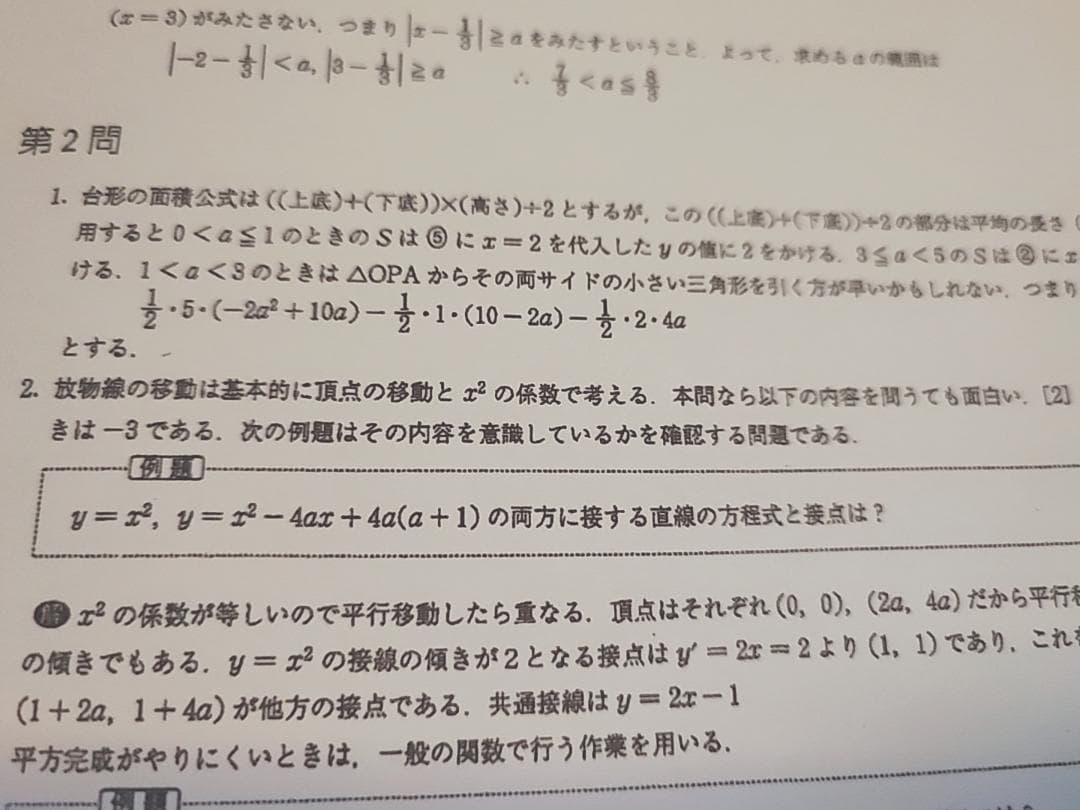 (x＝3)がみたさない．つまり|x－1/3|≧aをみたすということ．よって，求めるaの範囲は
|－2－1/3|＜a, |3－1/3|≧a ∴ 7/3＜a≦8/3
第2問
1. 台形の面積公式は((上底)+(下底))×(高さ)÷2とするが，この((上底)+(下底))÷2の部分は平均の長さ
用すると0＜a≦1のときのSは⑤にx＝2を代入したyの値に2をかける．3≦a＜5のSは②にx
ける．1＜a＜3のときは△OPAからその両サイドの小さい三角形を引く方が早いかもしれない．つまり
1/2・5・(－2a²＋10a)－1/2・1・(10－2a)－1/2・2・4a
とする．
2. 放物線の移動は基本的に頂点の移動とx²の係数で考える．本問なら以下の内容を問うても面白い．[2]
きは－3である．次の例題はその内容を意識しているかを確認する問題である．
例題
y＝x², y＝x²－4ax＋4a(a＋1)の両方に接する直線の方程式と接点は？
解 x²の係数が等しいので平行移動したら重なる．頂点はそれぞれ(0, 0), (2a, 4a)だから平行移
の傾きでもある．y＝x²の接線の傾きが2となる接点はy′＝2x＝2より(1, 1)であり，これを
(1＋2a, 1＋4a)が他方の接点である．共通接線はy＝2x－1
平方完成がやりにくいときは，一般の関数で行う作業を用いる．
例題